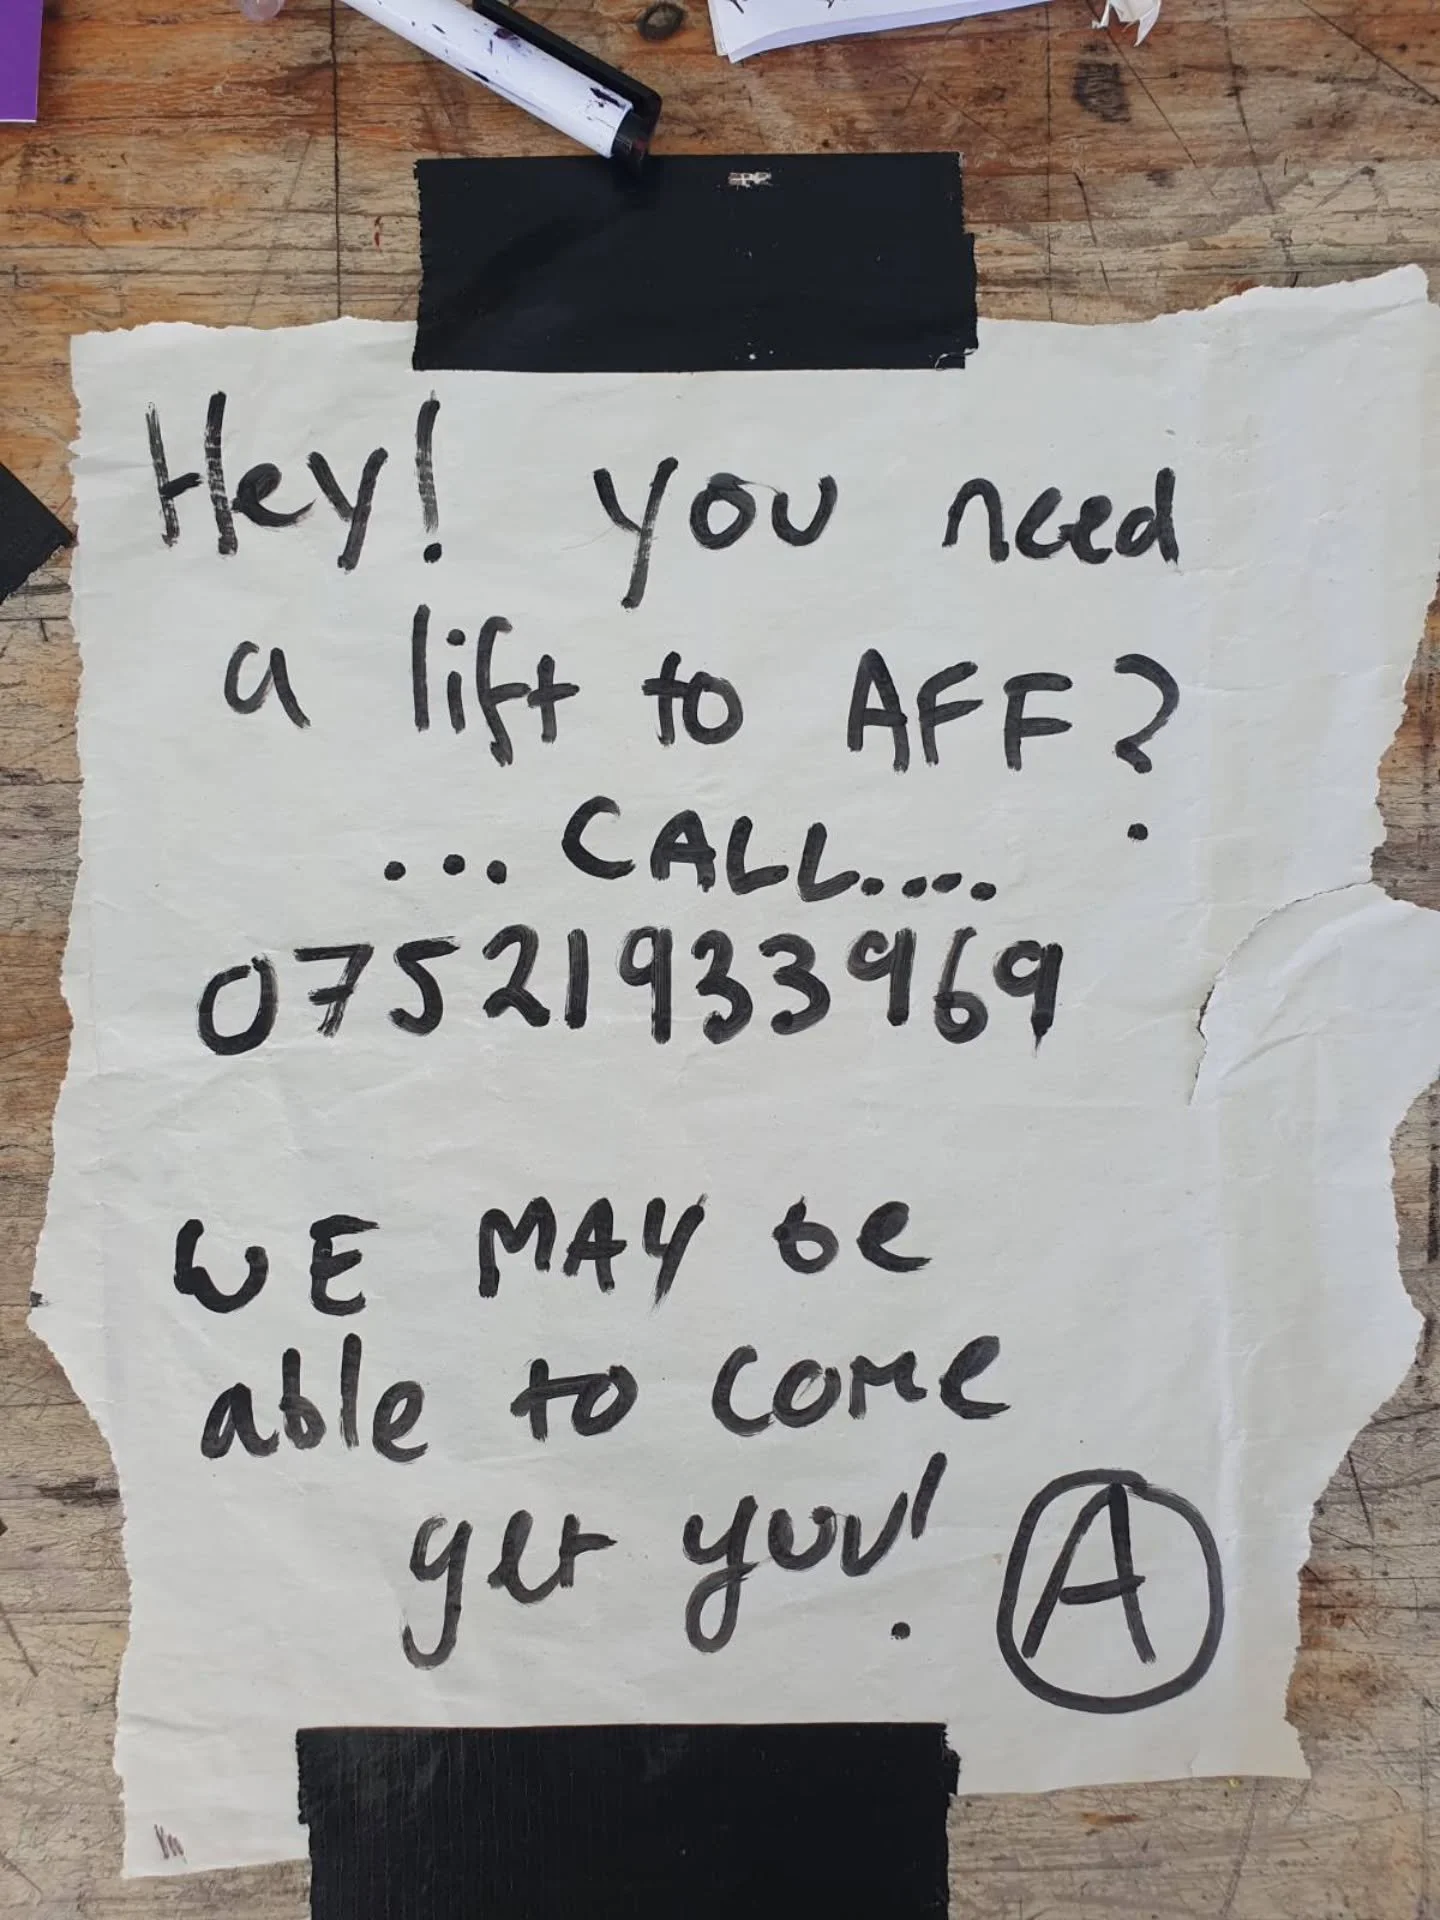 Hey! you need
a lift to AFF?
... CALL....
07521933969
WE MAY be
able to come
get you!
A